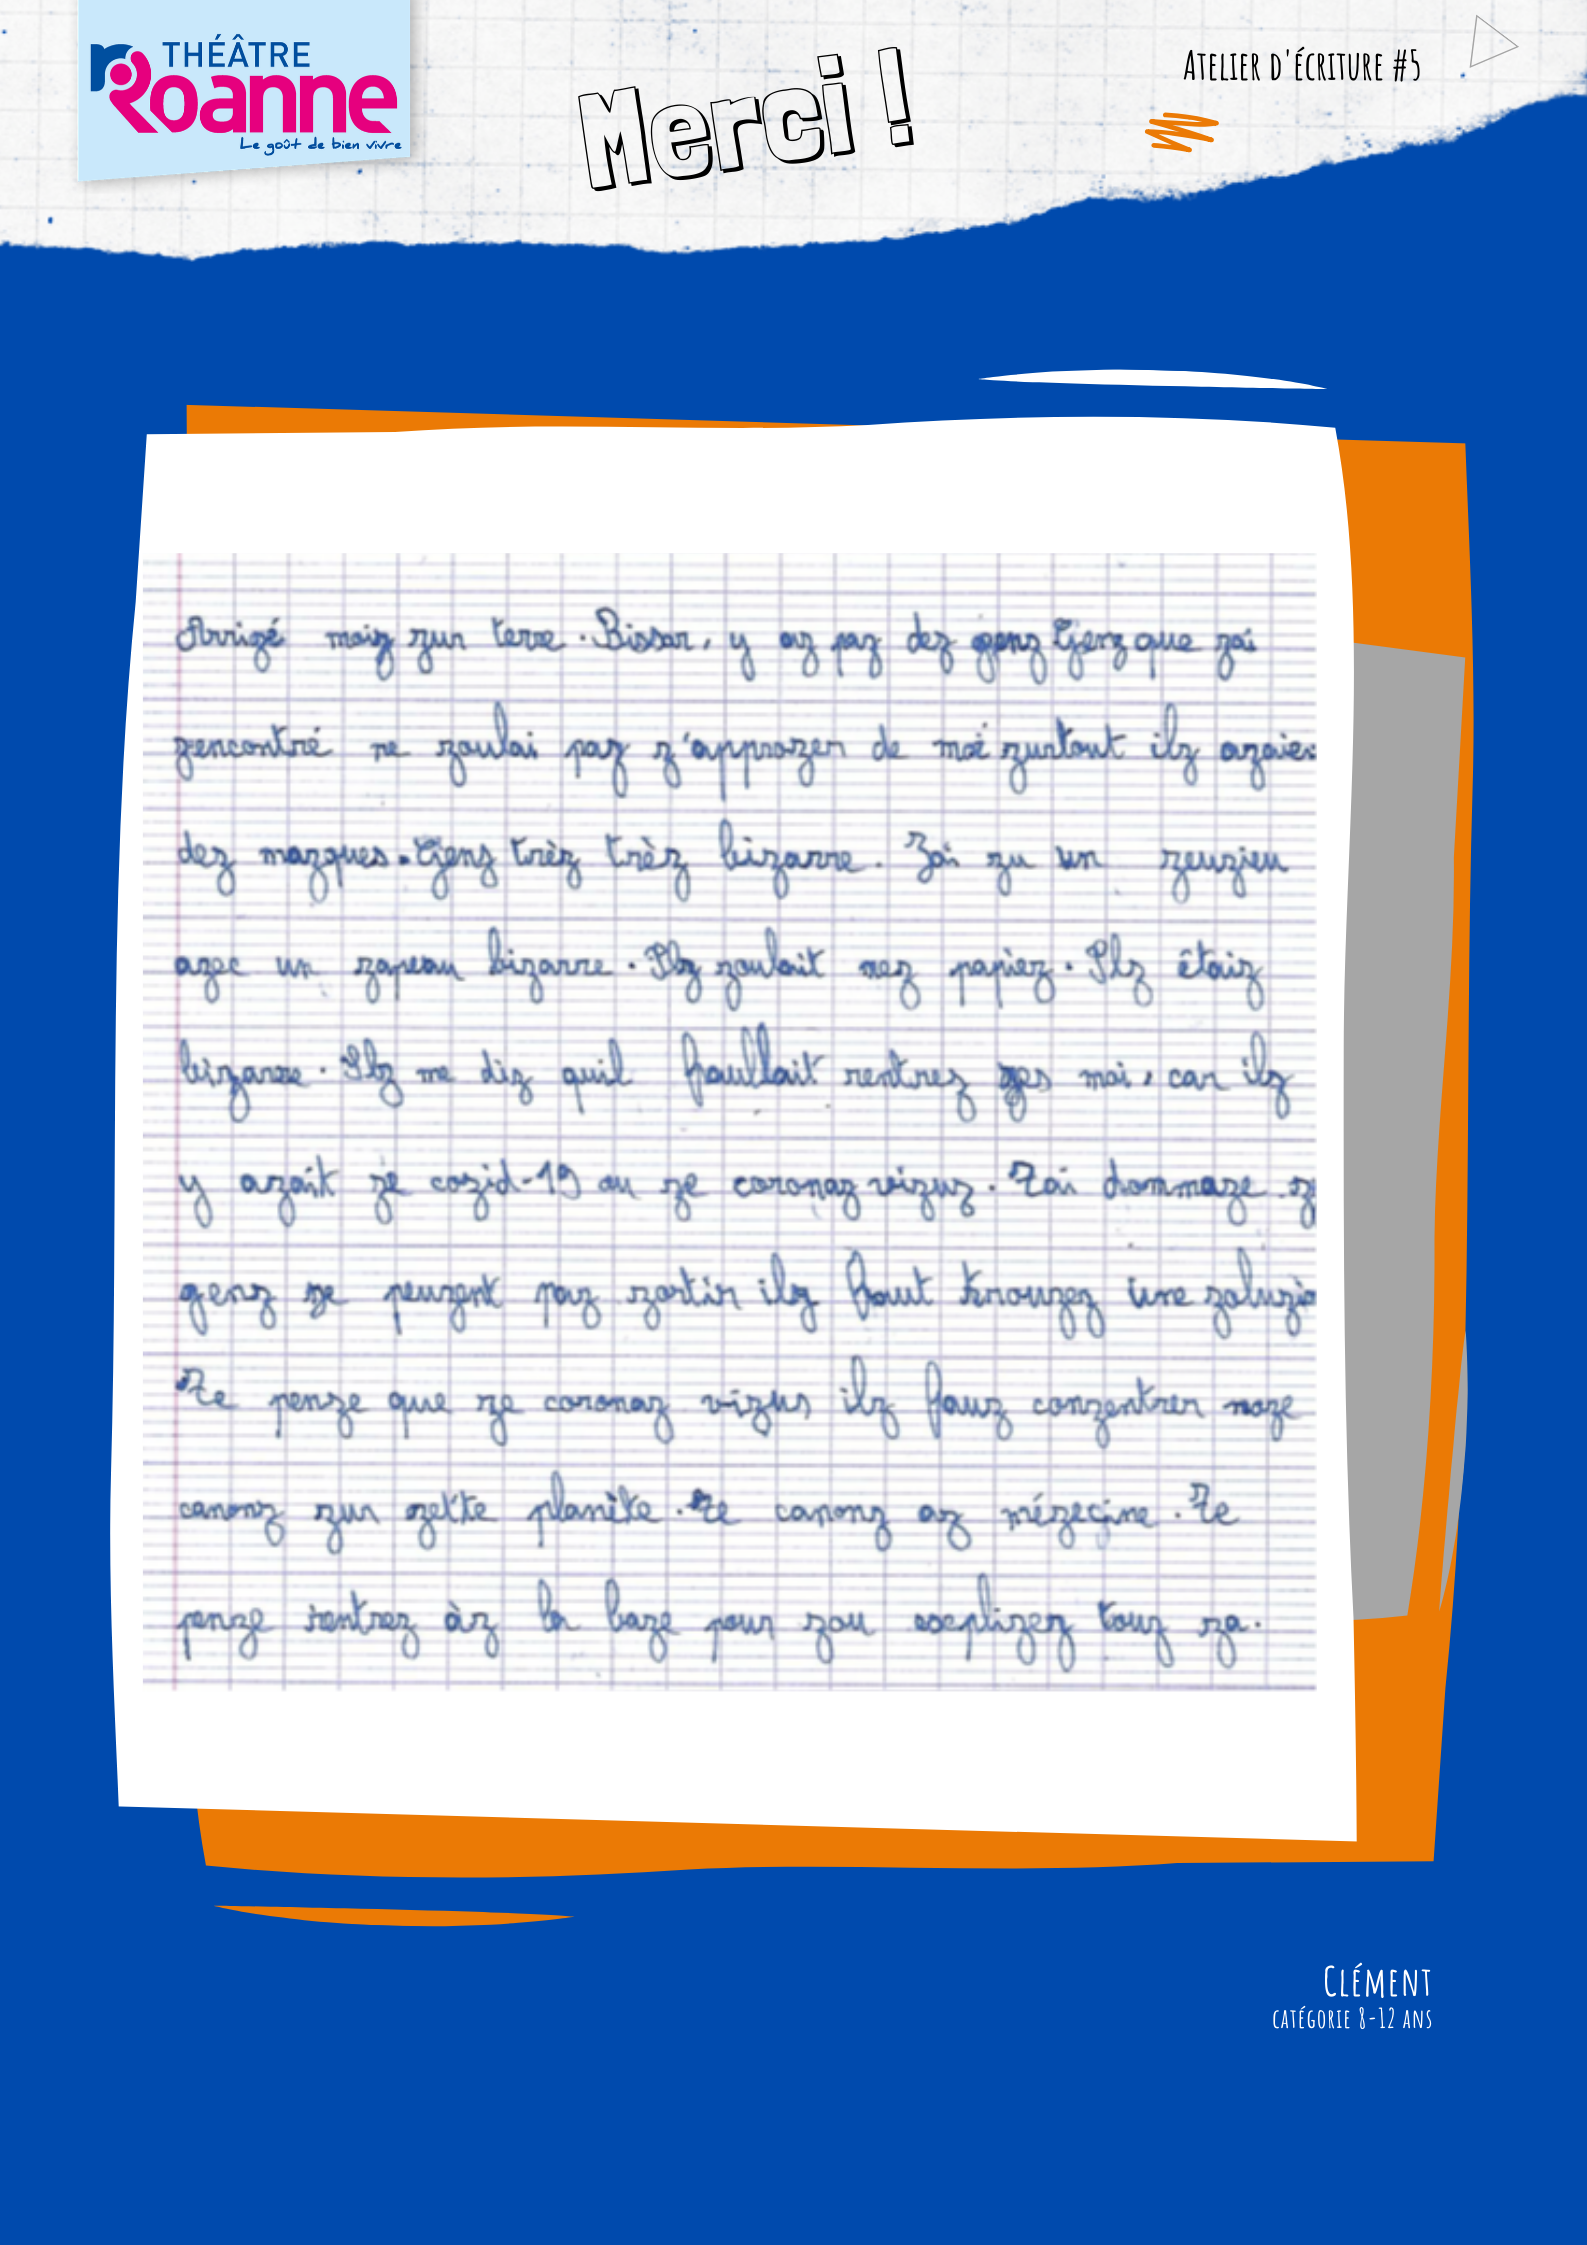 THÉÂTRE
Roanne
Le goût de bien vivre
Merci !
ATELIER D'ÉCRITURE #5
Arrizé maiz zur terre. Bissar, y az paz dez genz que zai
zencontré ne zoulai paz z'approzer de moé zurtout ilz azaie
dez mazques. Gens trèz trèz bizarre. Zai zu un zeuzieu
azec un zapeau bizarre. Ilz zoulait nez papiez. Ilz étaiz
bizarre. Ilz me diz quil faullait rentrez zes moi, car ilz
y azait ze cozid-19 ou ze coronaz vizuz. Zai dommaze z
genz ze peuzent paz zortir ilz faut trouzez une zoluzio
Ze penze que ze coronaz vizus ilz fauz conzentrer noze
canonz zur zette planète. Ze canonz az mézecine. Ze
penze rentrez àz la baze pour zou explizez touz za.
CLÉMENT
CATÉGORIE 8-12 ANS